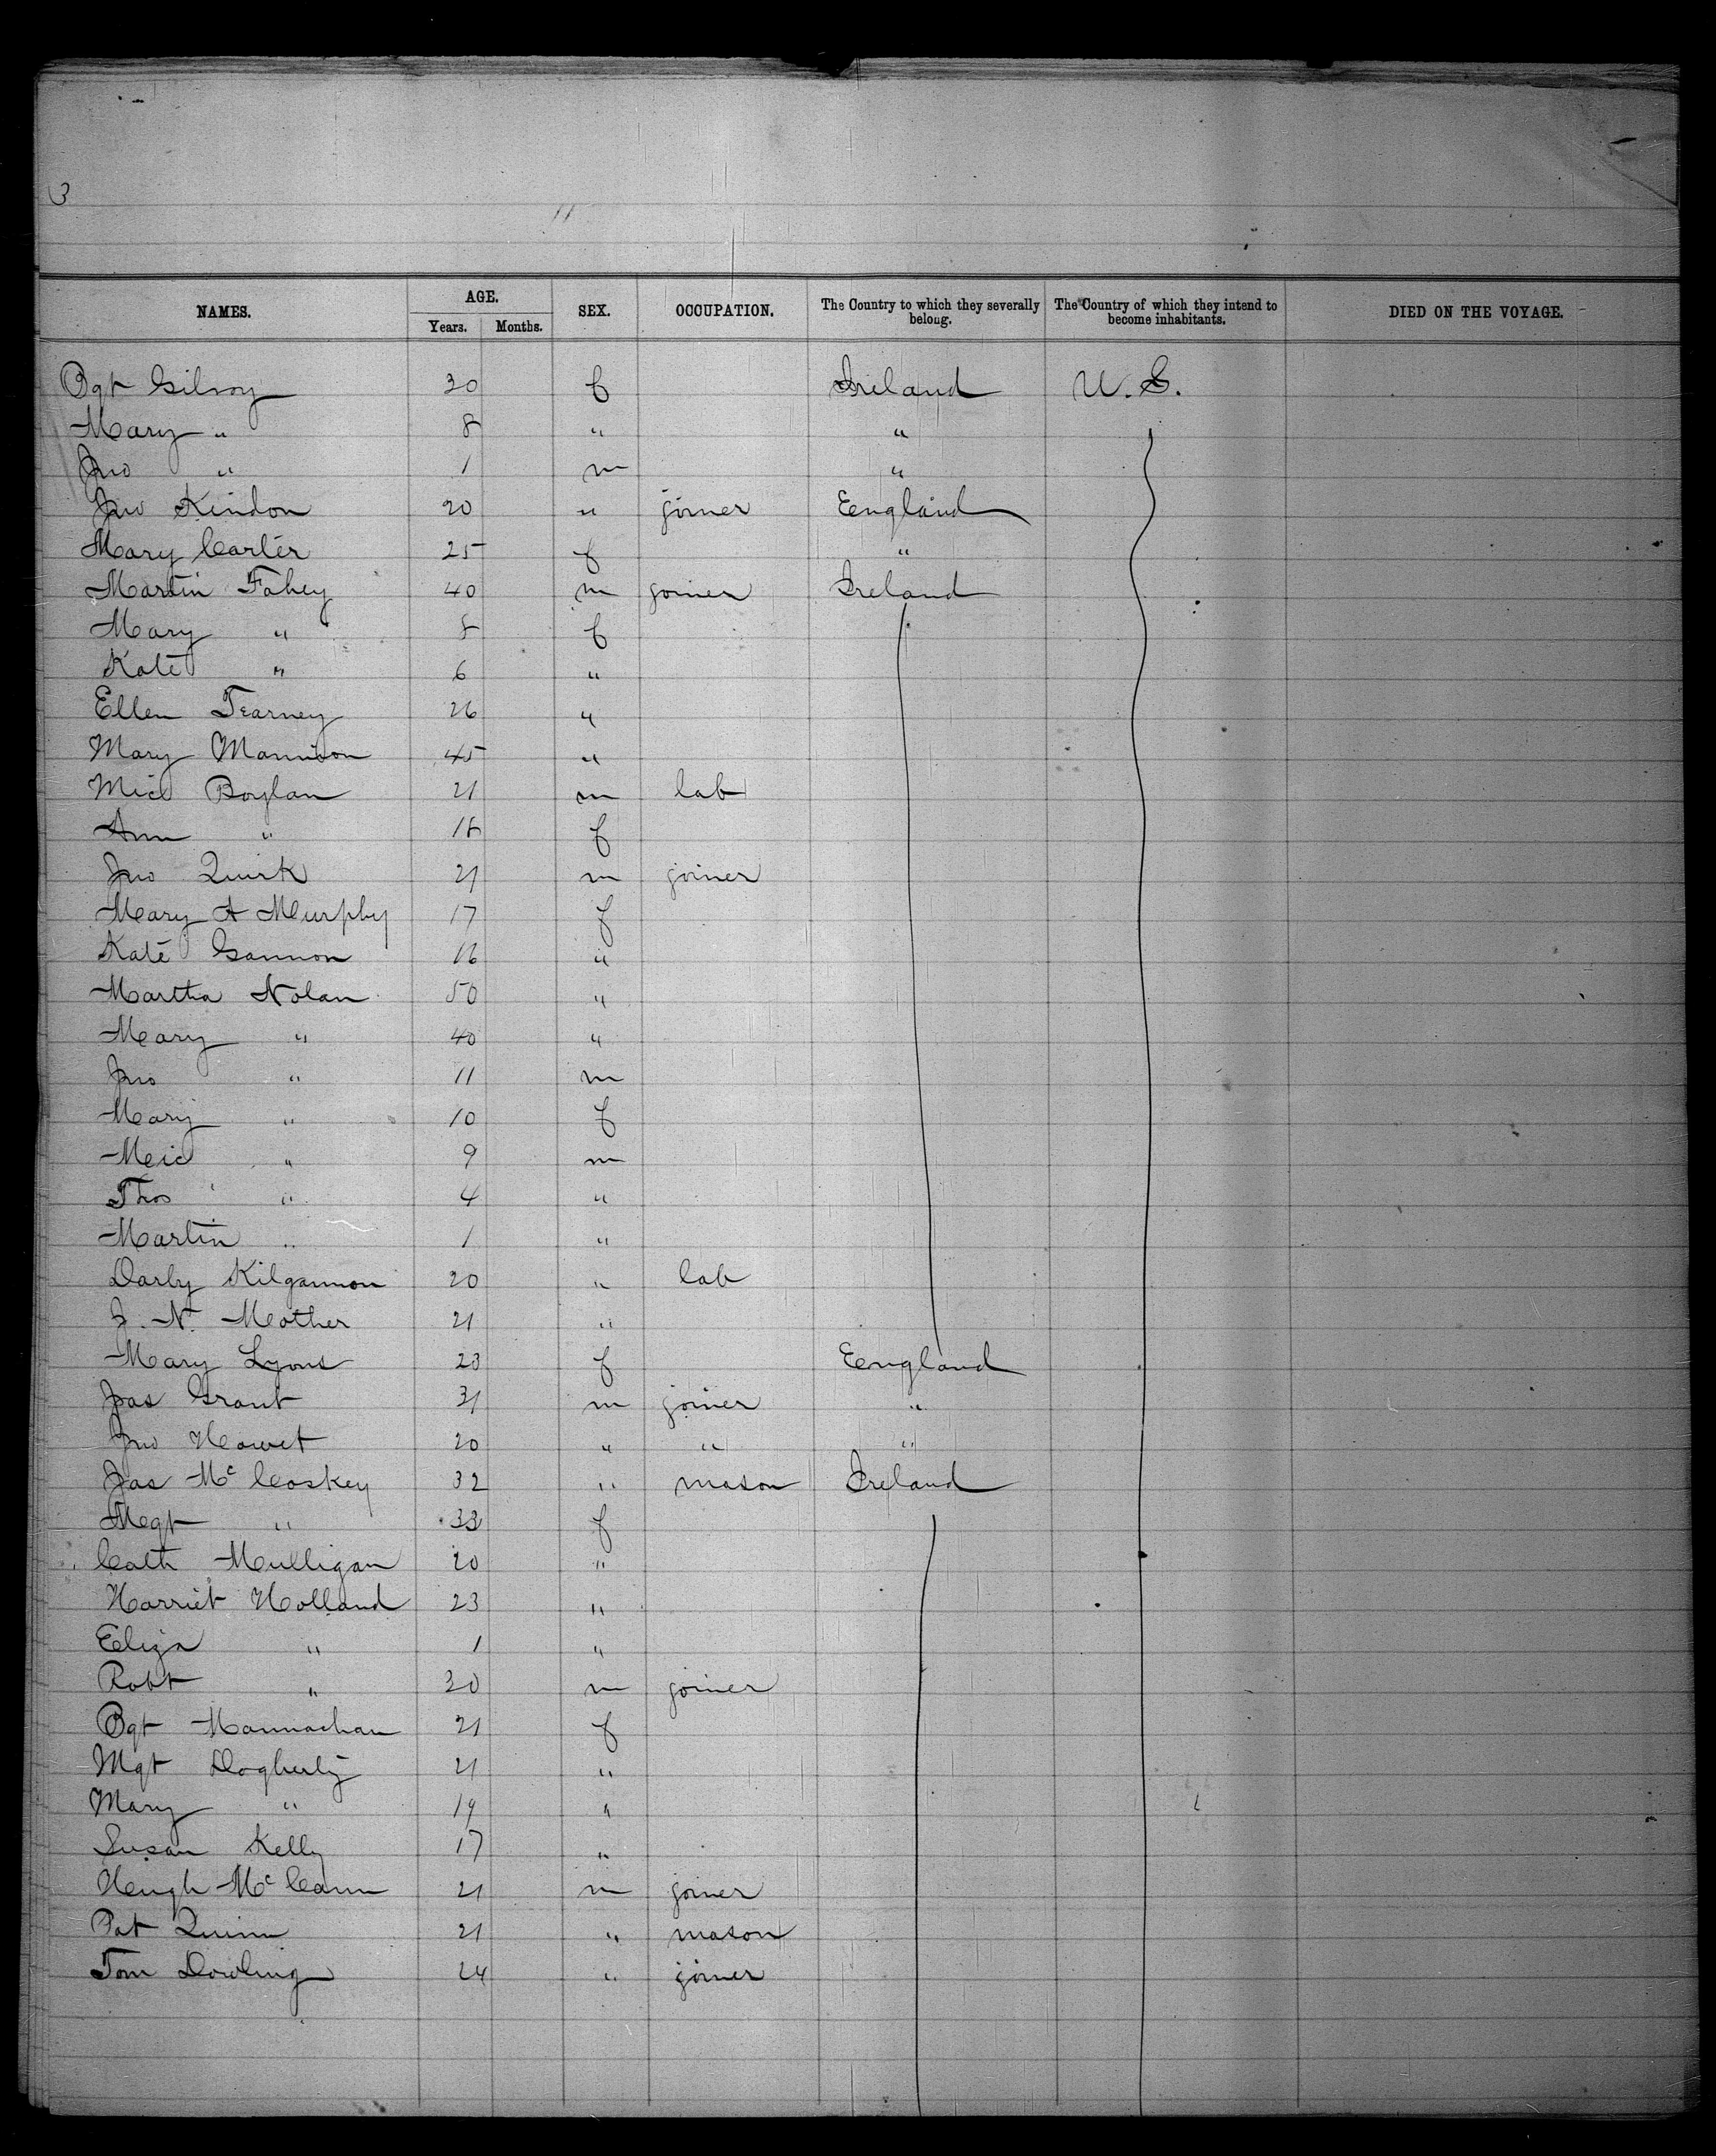 3
11
NAMES. AGE. SEX. OCCUPATION. The Country to which they severally belong. The Country of which they intend to become inhabitants. DIED ON THE VOYAGE.
Years. Months.
Bgt Gilroy 30 f Ireland U.S.
Mary " 8 " "
Jno " 1 m "
Jno Kindon 20 " joiner England
Mary Carter 25 f "
Martin Fahey 40 m joiner Ireland
Mary " 8 f
Kate " 6 "
Ellen Tearney 26 "
Mary Mannion 45 "
Mic Boylan 21 m lab
Ann " 18 f
Jno Quirk 21 m joiner
Mary A Murphy 17 f
Kate Gannon 16 "
Martha Nolan 50 "
Mary " 40 "
Jno " 11 m
Mary " 10 f
Mic " 9 m
Thos " 4 "
Martin " 1 "
Darby Kilgannon 20 " lab
J. N. Mother 21 "
Mary Lyons 23 f England
Jas Grant 31 m joiner "
Jno Howet 20 " " "
Jas McCoskey 32 " mason Ireland
Mgt " 33 f
Cath Mulligan 20 "
Harriet Holland 23 "
Eliza " 1 "
Robt " 30 m joiner
Bgt Mannachan 21 f
Mgt Dogherty 21 "
Mary " 19 "
Susan Kelly 17 "
Hugh McCann 21 m joiner
Pat Quinn 21 " mason
Tom Dowling 24 " joiner